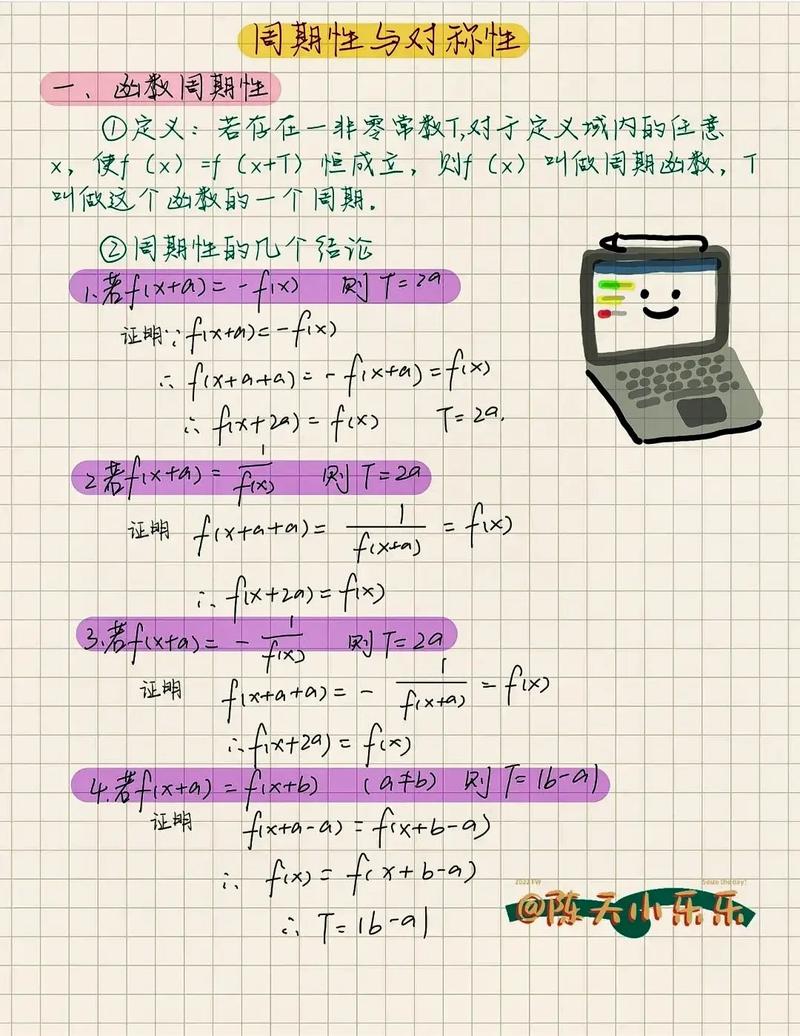 周期性与对称性
一、函数周期性
①定义：若存在一非零常数T,对于定义域内的任意
x，使f（x）=f（x+T）恒成立，则f（x）叫做周期函数，T
叫做这个函数的一个周期.
②周期性的几个结论
1.若f(x+a)=-f(x) 则T=2a
证明∵f(x+a)=-f(x)
∴ f(x+a+a)=-f(x+a)=f(x)
∴ f(x+2a)=f(x) T=2a.
2若f(x+a)=1/f(x) 则T=2a
证明 f(x+a+a)=1/f(x+a)=f(x)
∴ f(x+2a)=f(x)
3.若f(x+a)=-1/f(x) 则T=2a
证明 f(x+a+a)=-1/f(x+a)=f(x)
∴f(x+2a)=f(x)
4.若f(x+a)=f(x+b) (a≠b) 则T=|b-a|
证明 f(x+a-a)=f(x+b-a)
∴ f(x)=f(x+b-a)
∴ T=|b-a|
2022 FW Seize the day!
@陈天小乐乐